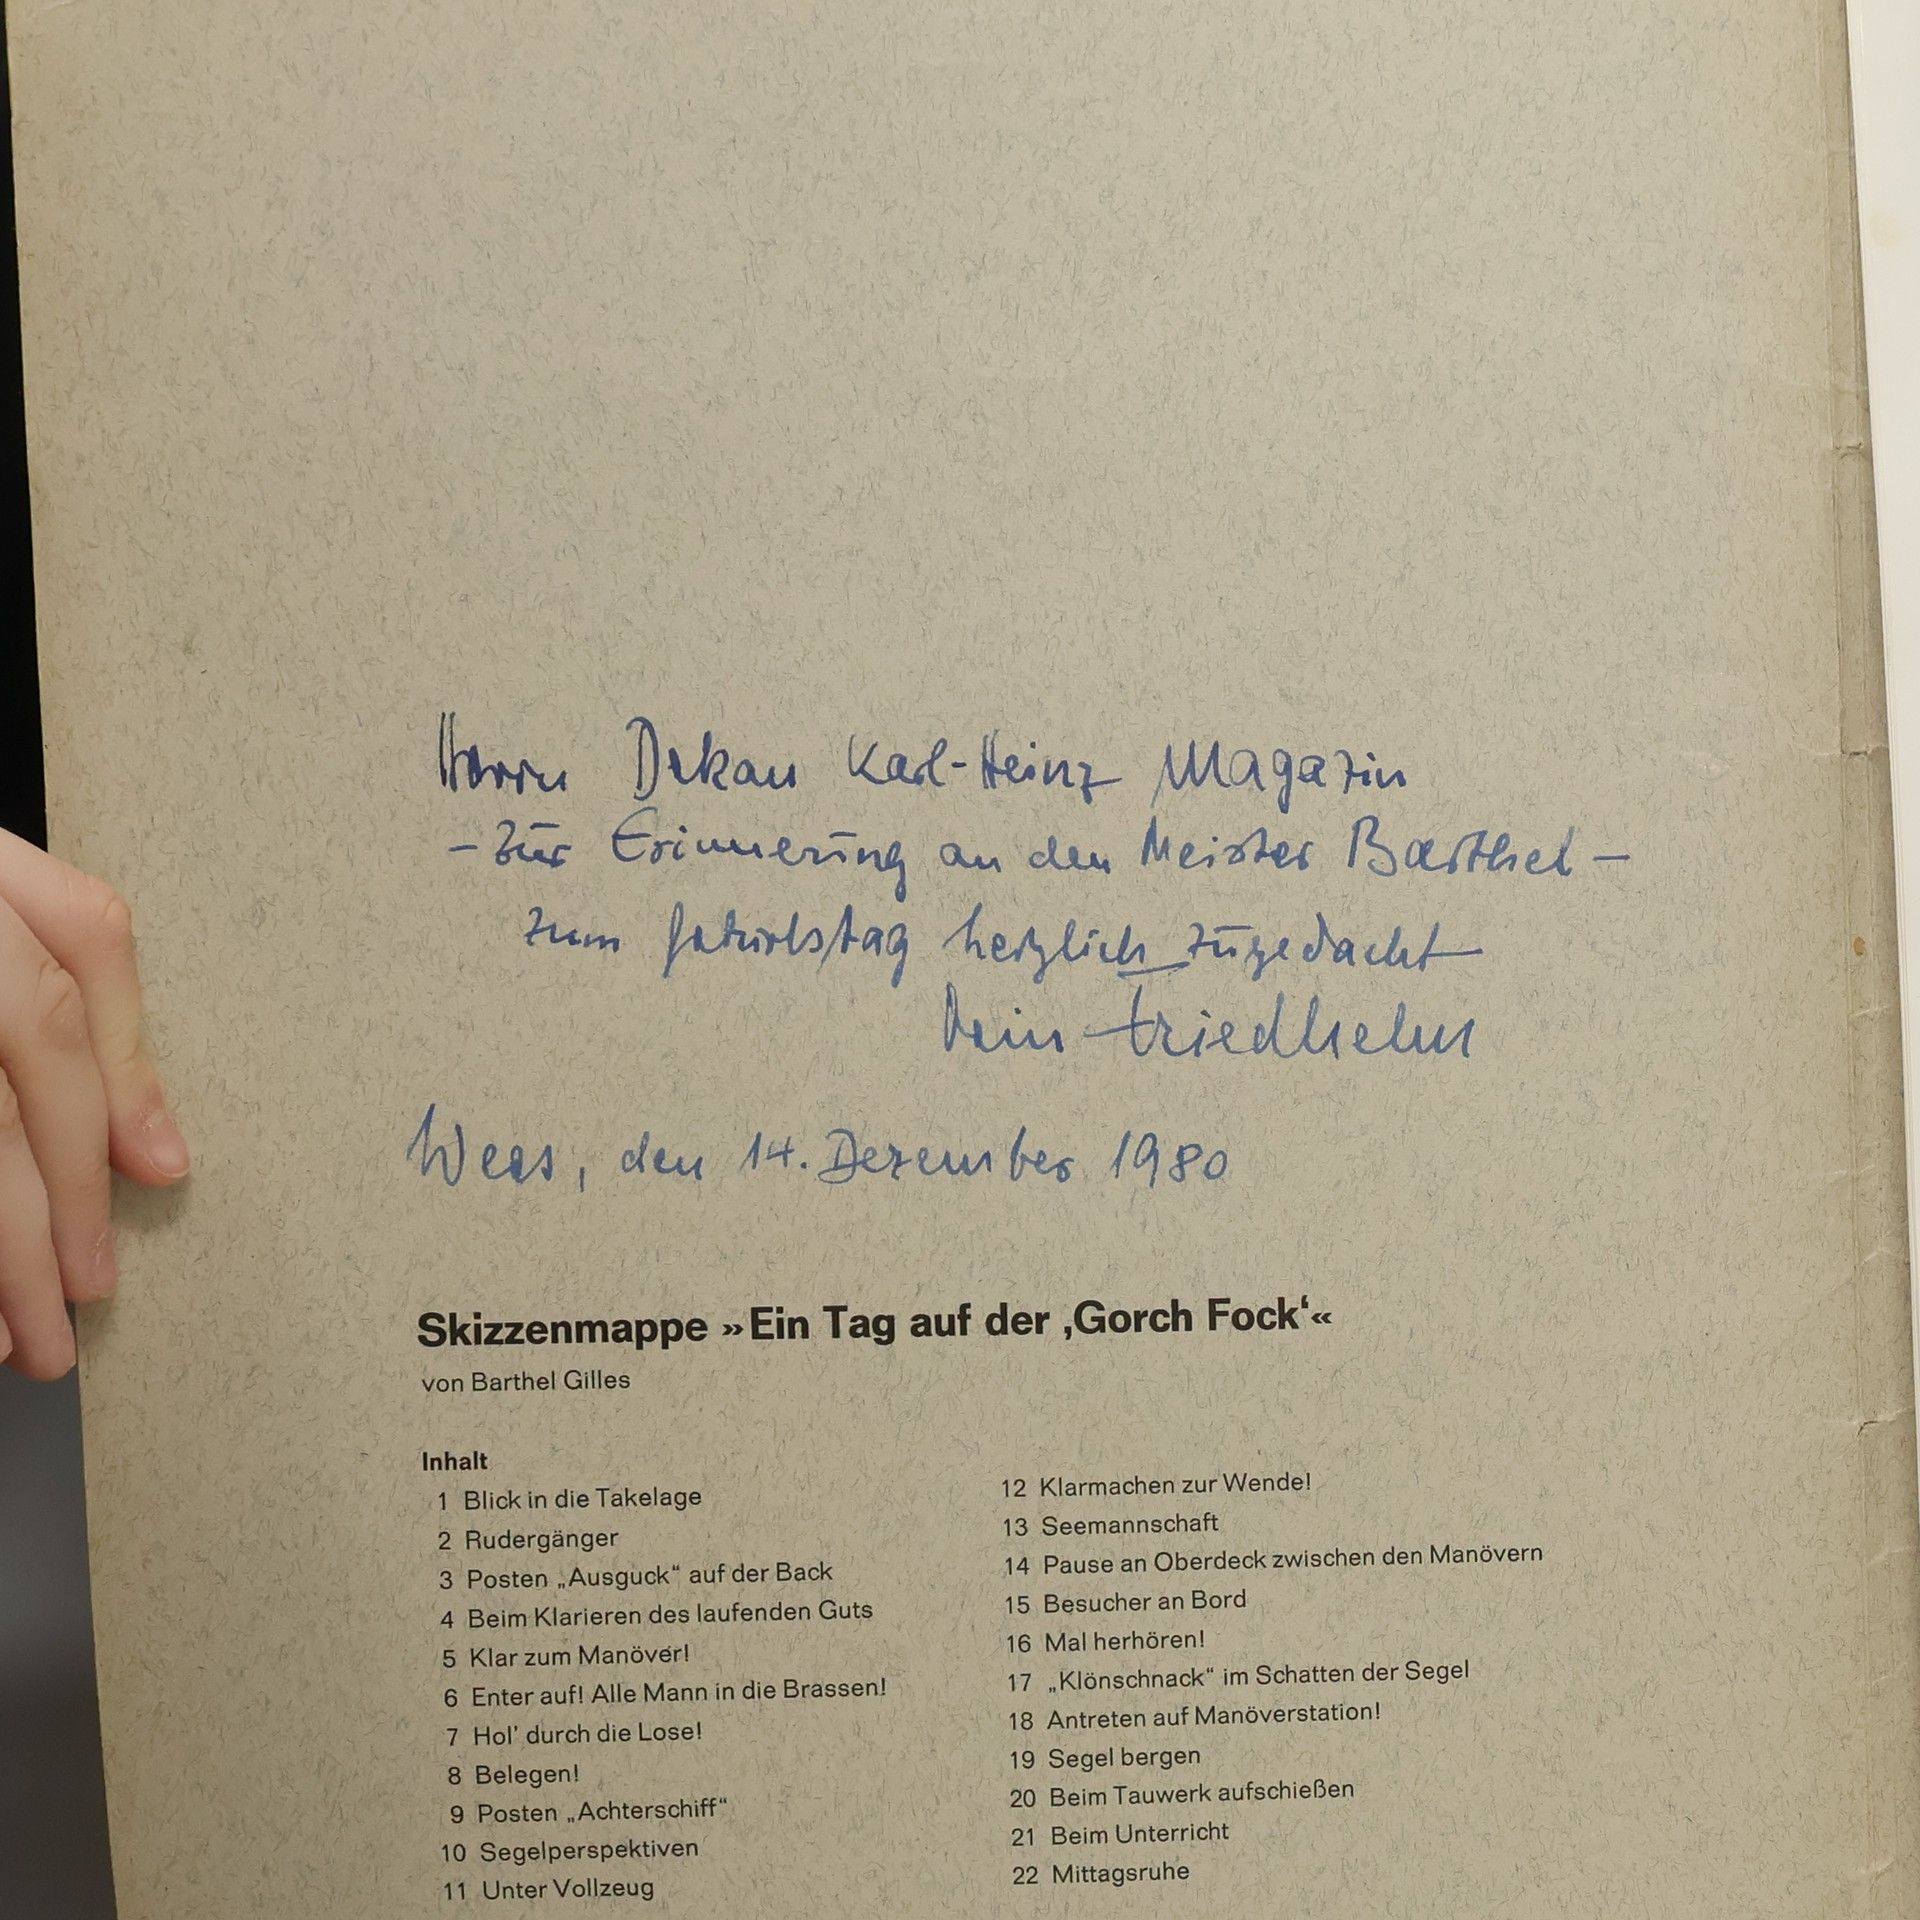 Herrn Dekan Karl-Heinz Magazin
- zur Erinnerung an den Meister Barthel -
zum Geburtstag herzlich zugedacht
Dein Friedhelm
Wees, den 14. Dezember 1980
Skizzenmappe »Ein Tag auf der ‚Gorch Fock‘«
von Barthel Gilles
Inhalt
1 Blick in die Takelage
2 Rudergänger
3 Posten „Ausguck“ auf der Back
4 Beim Klarieren des laufenden Guts
5 Klar zum Manöver!
6 Enter auf! Alle Mann in die Brassen!
7 Hol’ durch die Lose!
8 Belegen!
9 Posten „Achterschiff“
10 Segelperspektiven
11 Unter Vollzeug
12 Klarmachen zur Wende!
13 Seemannschaft
14 Pause an Oberdeck zwischen den Manövern
15 Besucher an Bord
16 Mal herhören!
17 „Klönschnack“ im Schatten der Segel
18 Antreten auf Manöverstation!
19 Segel bergen
20 Beim Tauwerk aufschießen
21 Beim Unterricht
22 Mittagsruhe